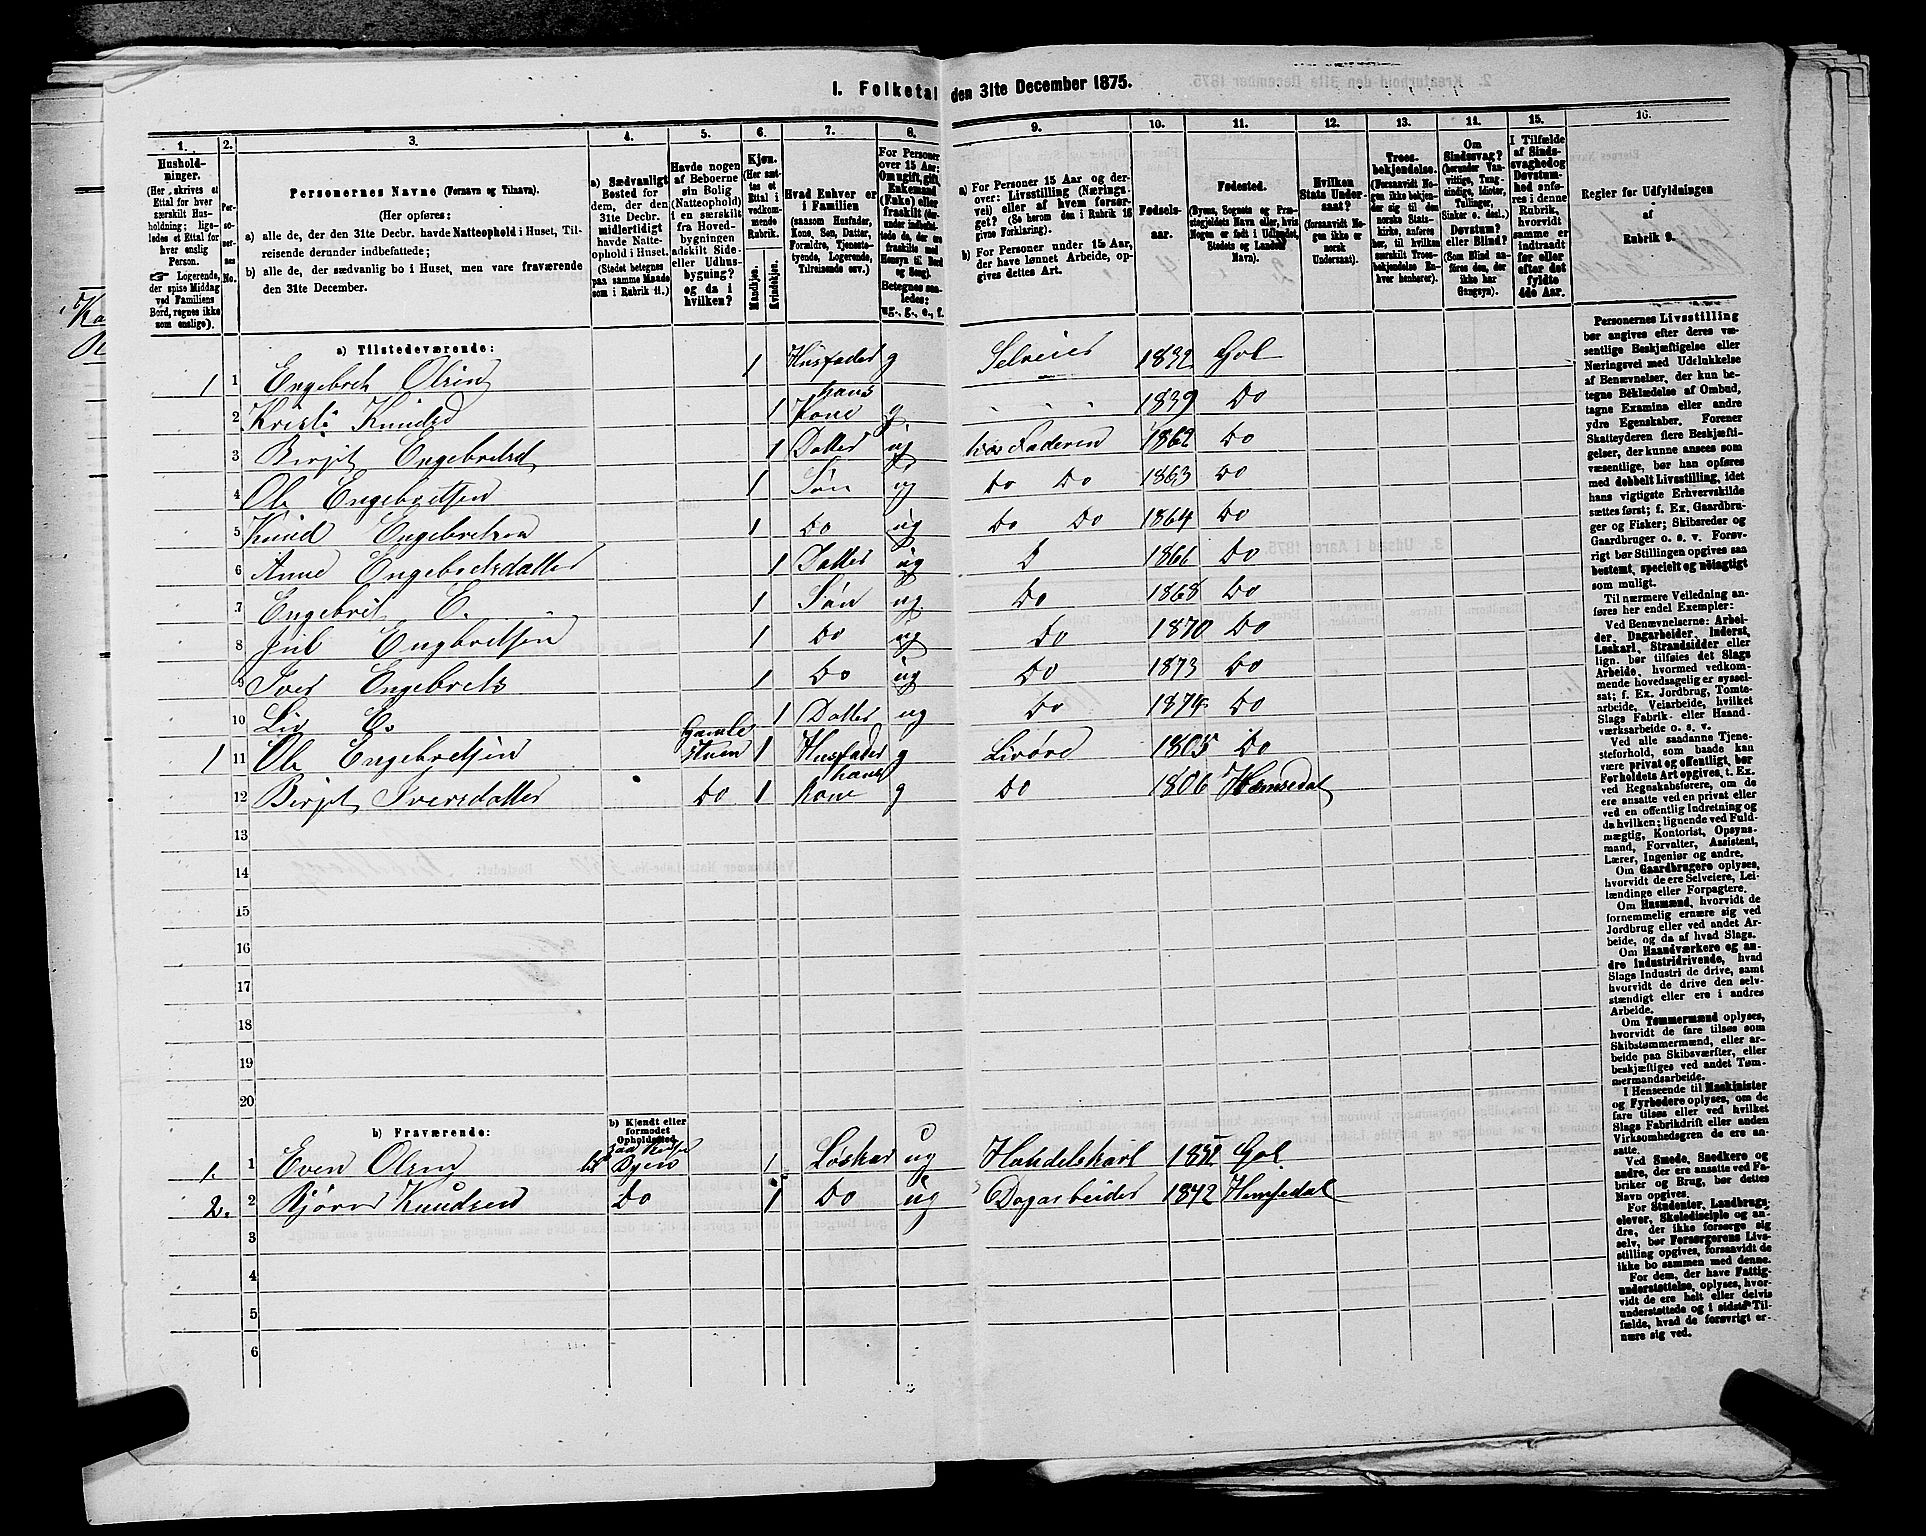 I. Folketal den 31te December 1875.
1. 2. 3. 4. 5. 6. 7. 8. 9. 10. 11. 12. 13. 14. 15. 16.
Husholdninger. (Her skrives et Ettal for hver særskilt Husholdning; ligeledes et Ettal for hver enslig Person. ☞ Logerende, der spise Middag ved Familiens Bord, regnes ikke som enslige).
Personernes No.
Personernes Navne (Fornavn og Tilnavn).
(Her opføres:
a) alle de, der den 31te Decbr. havde Natteophold i Huset, Tilreisende derunder indbefattede;
b) alle de, der sædvanlig bo i Huset, men vare fraværende den 31te December.
a) Sædvanligt Bosted for dem, der den 31te Decbr. midlertidigt havde Natteophold i Huset. (Stedet betegnes paa samme Maade som i Rubrik 11.)
Havde nogen af Beboerne sin Bolig (Natteophold) i en særskilt fra Hovedbygningen adskilt Side- eller Udhusbygning? og da i hvilken?
Kjøn. (Her sættes et Ettal i vedkommende Rubrik.
Mandkjøn. Kvindekjøn.
Hvad Enhver er i Familien (saasom Husfader, Kone, Søn, Datter, Formidre, Tjenestetyende, Logerende, Tilreisende osv.)
For Personer over 15 Aar: Om ugift, gift, Enkemand (Enke) eller fraskilt
Betegnes saaledes: ug., g., e., f.
a) For Personer 15 Aar og derover: Livsstilling (Næringsvei) eller af hvem forsørget? (Se herom den i Rubrik 16 givne Forklaring).
b) For Personer under 15 Aar, der have lønnet Arbeide, opgives dettes Art.
Fødselsaar.
Fødested. (Byens, Sognets og Præstegjeldets Navn eller, hvis Nogen er født i Udlandet, Stedets og Landets Navn.)
Hvilken Stats Undersaat? (foraavidt Nogen ikke er norsk Undersaat).
Troesbekjendelse. (Forsaavidt Nogen ikke bekjender sig til den norske Statskirke, anføres her, til hvilken særskilt Troesbekjendelse Enhver henhører).
Om Sindssvag? (herunder Vanvittige, Tungsindige, Idioter, Tullinger, Sinker o. desl.) Døvstum? eller Blind? (Som Blind anføres den, der ikke har Gangsyn).
I Tilfælde af Sindssvaghed og Døvstumhed anføres i denne Rubrik, hvorvidt samme er indtraadt før eller efter det fyldte 4de Aar.
Regler for Udfyldningen af Rubrik 9.
a) Tilstedeværende:
1 1 Engebret Olsen 1 Husfader g Selveier 1832 Gol
2 Kristi Knudsd 1 hans Kone g 1839 Do
3 Birgit Engebretsd 1 Datter ug hos Faderen 1862 Do
4 Ole Engebretsen 1 Søn ug Do Do 1863 Do
5 Knud Engebretsen 1 Do ug Do Do 1864 Do
6 Anne Engebretsdatter 1 Datter ug D 1866 Do
7 Engebret E. 1 Søn ug Do 1868 Do
8 Juul Engebretsen 1 Do ug Do 1870 Do
9 Iver Engebrets 1 Do ug Do 1873 Do
10 Liv E. 1 Datter ug Do 1874 Do
1 11 Ole Engebretsen Gamle stuen 1 Husfader g Livøre 1805 Do
12 Birgit Iversdatter Do 1 hans Kone g Do 1806 Hemsedal
13
14
15
16
17
18
19
20
b) Fraværende:
b) Kjendt eller formodet Opholdssted.
1. 1 Even Olsen paa Reise til Byen 1 Løskar ug Handelskarl Gol
2. 2 Bjørn Knudsen Do 1 Do ug Dagarbeider 1842 Hemsedal
3
4
5
6
Personernes Livsstilling
bør angives efter deres væ-
sentlige Beskjæftigelse eller
Næringsvei med Udelukkelse
af Benævnelser, der kun be-
tegne Beklædelse af Ombud,
tagne Examina eller andre
ydre Egenskaber. Forener
Skatteyderen flere Beskjæfti-
gelser, der kunne ansees som
væsentlige, bør han opføres
med dobbelt Livsstilling, idet
hans vigtigste Erhvervskilde
sættes først; f. Ex. Gaardbru-
ger og Fisker; Skibsreder og
Gaardbruger o. s. v. Forøv-
rigt bør Stillingen opgives saa
bestemt, specielt og nöiagtigt
som muligt.
Til nærmere Veiledning an-
føres her endel Exempler:
Ved Benævnelserne: Arbei-
der, Dagarbeider, Inderst,
Løskarl, Strandsidder eller
lign. bør tilføies det Slags
Arbeide, hvormed vedkom-
mende hovedsagelig er syssel-
sat; f. Ex. Jordbrug, Tomte-
arbeide, Veiarbeide, hvilket
Slags Fabrik- eller Haand-
værksarbeide o. s. v.
Ved alle saadanne Tjene-
steforhold, som baade kan
være privat og offentligt, bør
Forholdets Art opgives, t. Ex.
ved Regnskabsførere, om de
ere ansatte ved en privat eller
ved en offentlig Indretning og
da hvilken; lignende ved Fuld-
mægtig, Kontorist, Opsyns-
mand, Forvalter, Assistent,
Lærer, Ingeniør og andre.
Om Gaardbrugere oplyses,
hvorvidt de ere Selveiere, Lei-
lændinge eller Forpagtere.
Om Husmænd, hvorvidt de
fornemmelig ernære sig ved
Jordbrug eller ved andet Ar-
beide, og da af hvad Slags.
Om Haandværkere og an-
dre industridrivende, hvad
Slags Industri de drive, samt
hvorvidt de drive den selv-
stændigt eller ere i andres
Arbeide.
Om Tømmermænd oplyses,
hvorvidt de fare tilsøs som
Skibstømmermænd, eller ar-
beide paa Skibsværfter, eller
beskjæftiges ved andet Tøm-
mermandsarbeide.
I Henseende til Maskinister
og Fyrbødere oplyses, om de
fare tilsøs eller ved hvilket
Slags Fabrikdrift eller anden
Virksomhedsgren de ere an-
satte.
Ved Smede, Snedkere og
andre, der ere ansatte ved Fa-
briker og Brug, bør dettes
Navn opgives.
For Studenter, Landbrugs-
elever, Skoledisciple og an-
dre, der ikke forsørge sig
selv, bør Forsørgerens Livs-
stilling opgives, forsaavidt de
ikke bo sammen med denne.
For dem, der have Fattig-
understøttelse, oplyses, hvor-
vidt de ere helt eller delvis
understøttede og i sidste Til-
fælde, hvad de forøvrigt er-
nære sig ved.